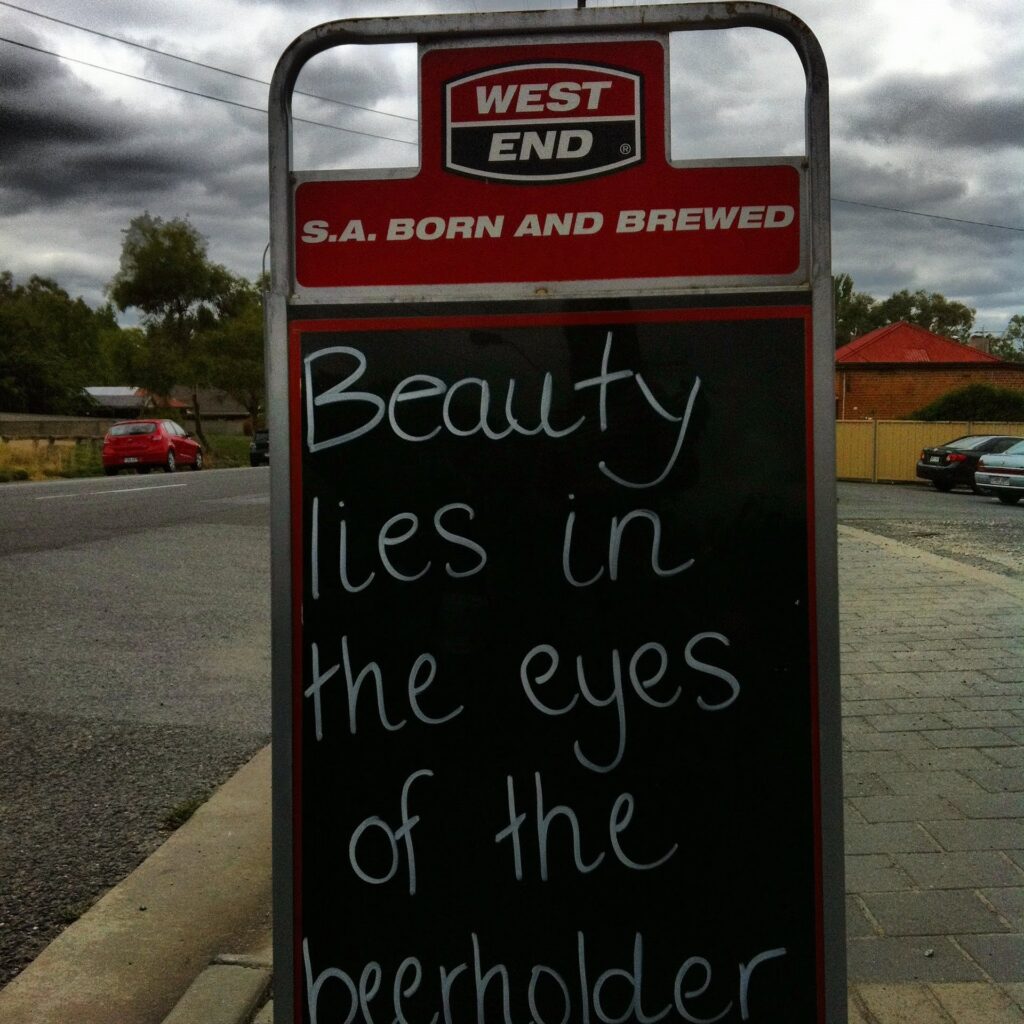 WEST
END ®
S.A. BORN AND BREWED
Beauty
lies in
the eyes
of the
beerholder